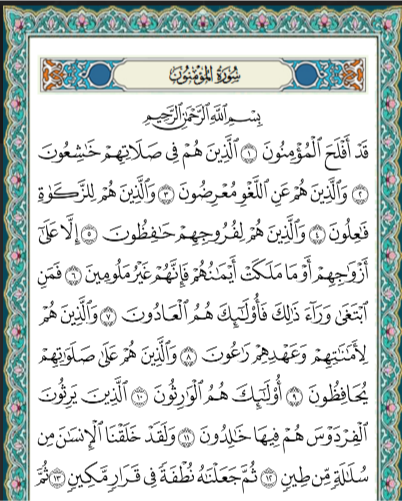 سُورَةُ المُؤۡمِنُونَ
بِسۡمِ ٱللَّهِ ٱلرَّحۡمَٰنِ ٱلرَّحِيمِ
قَدۡ أَفۡلَحَ ٱلۡمُؤۡمِنُونَ ١ ٱلَّذِينَ هُمۡ فِي صَلَاتِهِمۡ خَٰشِعُونَ
٢ وَٱلَّذِينَ هُمۡ عَنِ ٱللَّغۡوِ مُعۡرِضُونَ ٣ وَٱلَّذِينَ هُمۡ لِلزَّكَوٰةِ
فَٰعِلُونَ ٤ وَٱلَّذِينَ هُمۡ لِفُرُوجِهِمۡ حَٰفِظُونَ ٥ إِلَّا عَلَىٰٓ
أَزۡوَٰجِهِمۡ أَوۡ مَا مَلَكَتۡ أَيۡمَٰنُهُمۡ فَإِنَّهُمۡ غَيۡرُ مَلُومِينَ ٦ فَمَنِ
ٱبۡتَغَىٰ وَرَآءَ ذَٰلِكَ فَأُوْلَٰٓئِكَ هُمُ ٱلۡعَادُونَ ٧ وَٱلَّذِينَ هُمۡ
لِأَمَٰنَٰتِهِمۡ وَعَهۡدِهِمۡ رَٰعُونَ ٨ وَٱلَّذِينَ هُمۡ عَلَىٰ صَلَوَٰتِهِمۡ
يُحَافِظُونَ ٩ أُوْلَٰٓئِكَ هُمُ ٱلۡوَٰرِثُونَ ١٠ ٱلَّذِينَ يَرِثُونَ
ٱلۡفِرۡدَوۡسَ هُمۡ فِيهَا خَٰلِدُونَ ١١ وَلَقَدۡ خَلَقۡنَا ٱلۡإِنسَٰنَ مِن
سُلَٰلَةٖ مِّن طِينٖ ١٢ ثُمَّ جَعَلۡنَٰهُ نُطۡفَةٗ فِي قَرَارٖ مَّكِينٖ ١٣ ثُمَّ